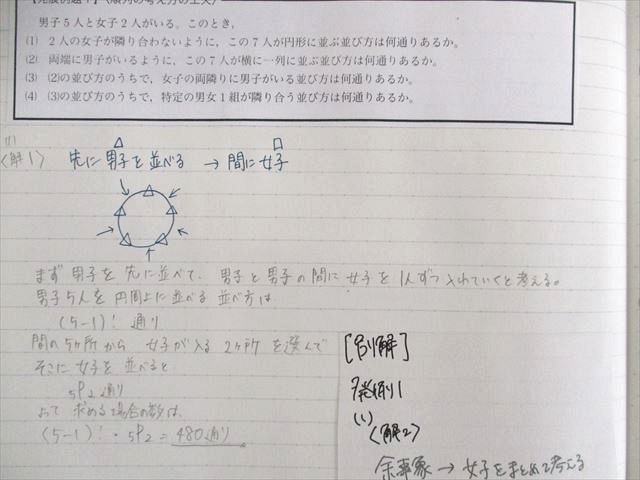 【発展例題1】(順列の考え方の工夫)
男子5人と女子2人がいる。このとき，
(1) 2人の女子が隣り合わないように，この7人が円形に並ぶ並び方は何通りあるか。
(2) 両端に男子がいるように，この7人が横に一列に並ぶ並び方は何通りあるか。
(3) (2)の並び方のうちで，女子の両隣りに男子がいる並び方は何通りあるか。
(4) (3)の並び方のうちで，特定の男女1組が隣り合う並び方は何通りあるか。
(1)
〈解1〉 先に男子を並べる → 間に女子
まず男子を先に並べて、男子と男子の間に女子を1人ずつ入れていくと考える。
男子5人を円周上に並べる並べ方は、
(5-1)! 通り
間の5ヶ所から女子が入る2ヶ所を選んで
そこに女子を並べると
₅P₂通り
よって求める場合の数は、
(5-1)!・₅P₂ = 480通り
[別解]
発例1
(1)
〈解2〉
余事象→女子をまとめて考える